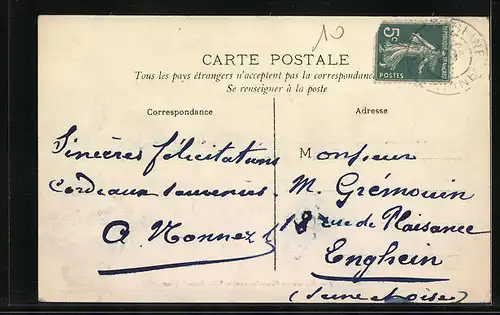 10
CARTE POSTALE
Tous les pays étrangers n'acceptent pas la correspondance
Se renseigner à la poste
Correspondance
Adresse
5c
POSTES
Sincères félicitations
Cordeaux souvenirs.
A. Monnez
Monsieur
M. Grémouin
18 rue de Plaisance
Enghein
(Seine et Oise)